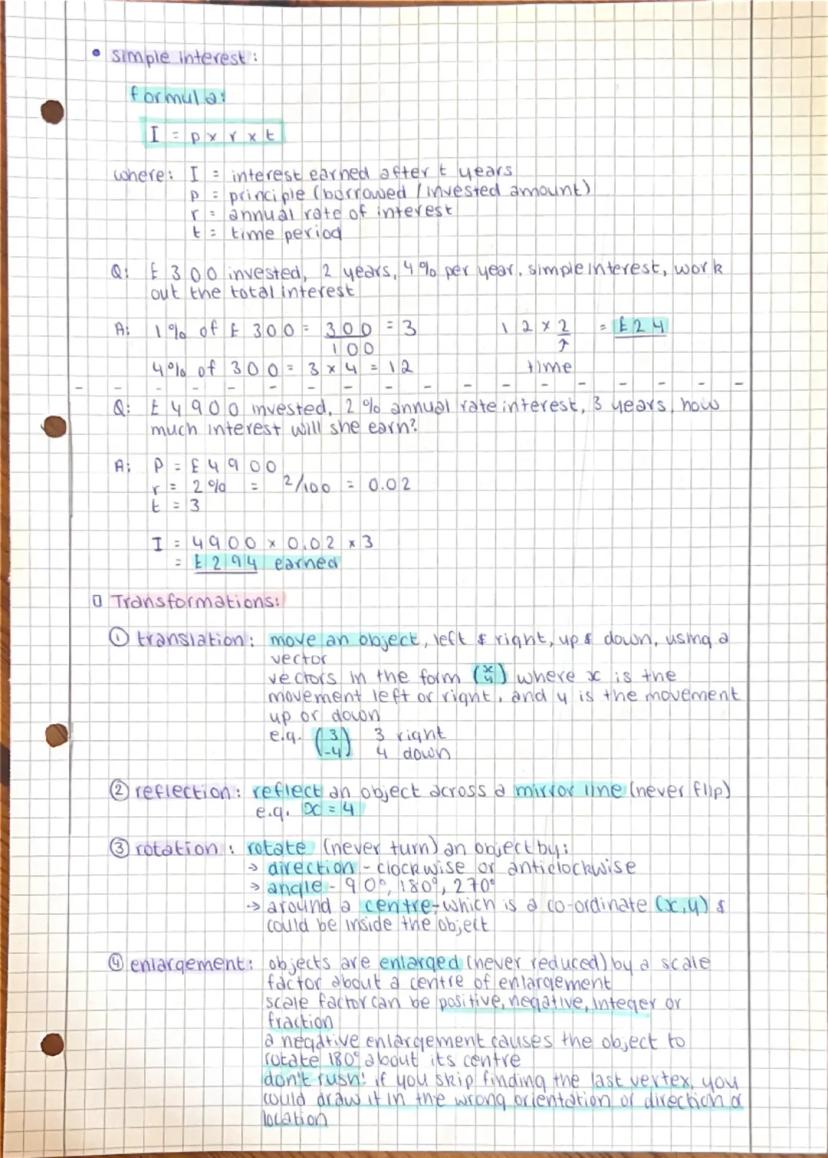 • simple interest:
formula:
I = p x r x t
where: I = interest earned after t years
p = principle (borrowed / invested amount)
r = annual rate of interest
t = time period
Q: £300 invested, 2 years, 4% per year, simple interest, work
out the total interest
A: 1% of £300 = 300/100 = 3    12 x 2 = £24
4% of 300 = 3 x 4 = 12    ↑ time
Q: £4900 invested, 2% annual rate interest, 3 years, how
much interest will she earn?
A: P = £4900
r = 2% = 2/100 = 0.02
t = 3
I = 4900 x 0.02 x 3
= £294 earned
Transformations:
① translation: move an object, left & right, up & down, using a
vector
vectors in the form (x y) where x is the
movement left or right, and y is the movement
up or down
e.g. (3 -4) 3 right
4 down
② reflection: reflect an object across a mirror line (never flip)
e.g. x = 4
③ rotation: rotate (never turn) an object by:
→ direction - clockwise or anticlockwise
→ angle - 90°, 180°, 270°
→ around a centre - which is a co-ordinate (x,y) &
could be inside the object
④ enlargement: objects are enlarged (never reduced) by a scale
factor about a centre of enlargement
scale factor can be positive, negative, integer or
fraction
a negative enlargement causes the object to
rotate 180° about its centre
don't rush! if you skip finding the last vertex, you
could draw it in the wrong orientation or direction or
location